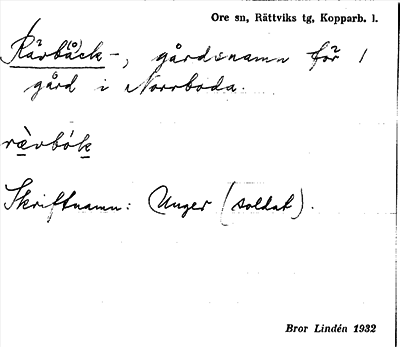 Ore sn, Rättviks tg, Kopparb. l.
Rävb(å)äck-, gårdsnamn för 1
gård i Norrboda.
rὲvbók
Skriftnamn: Unger (soldat).
Bror Lindén 1932